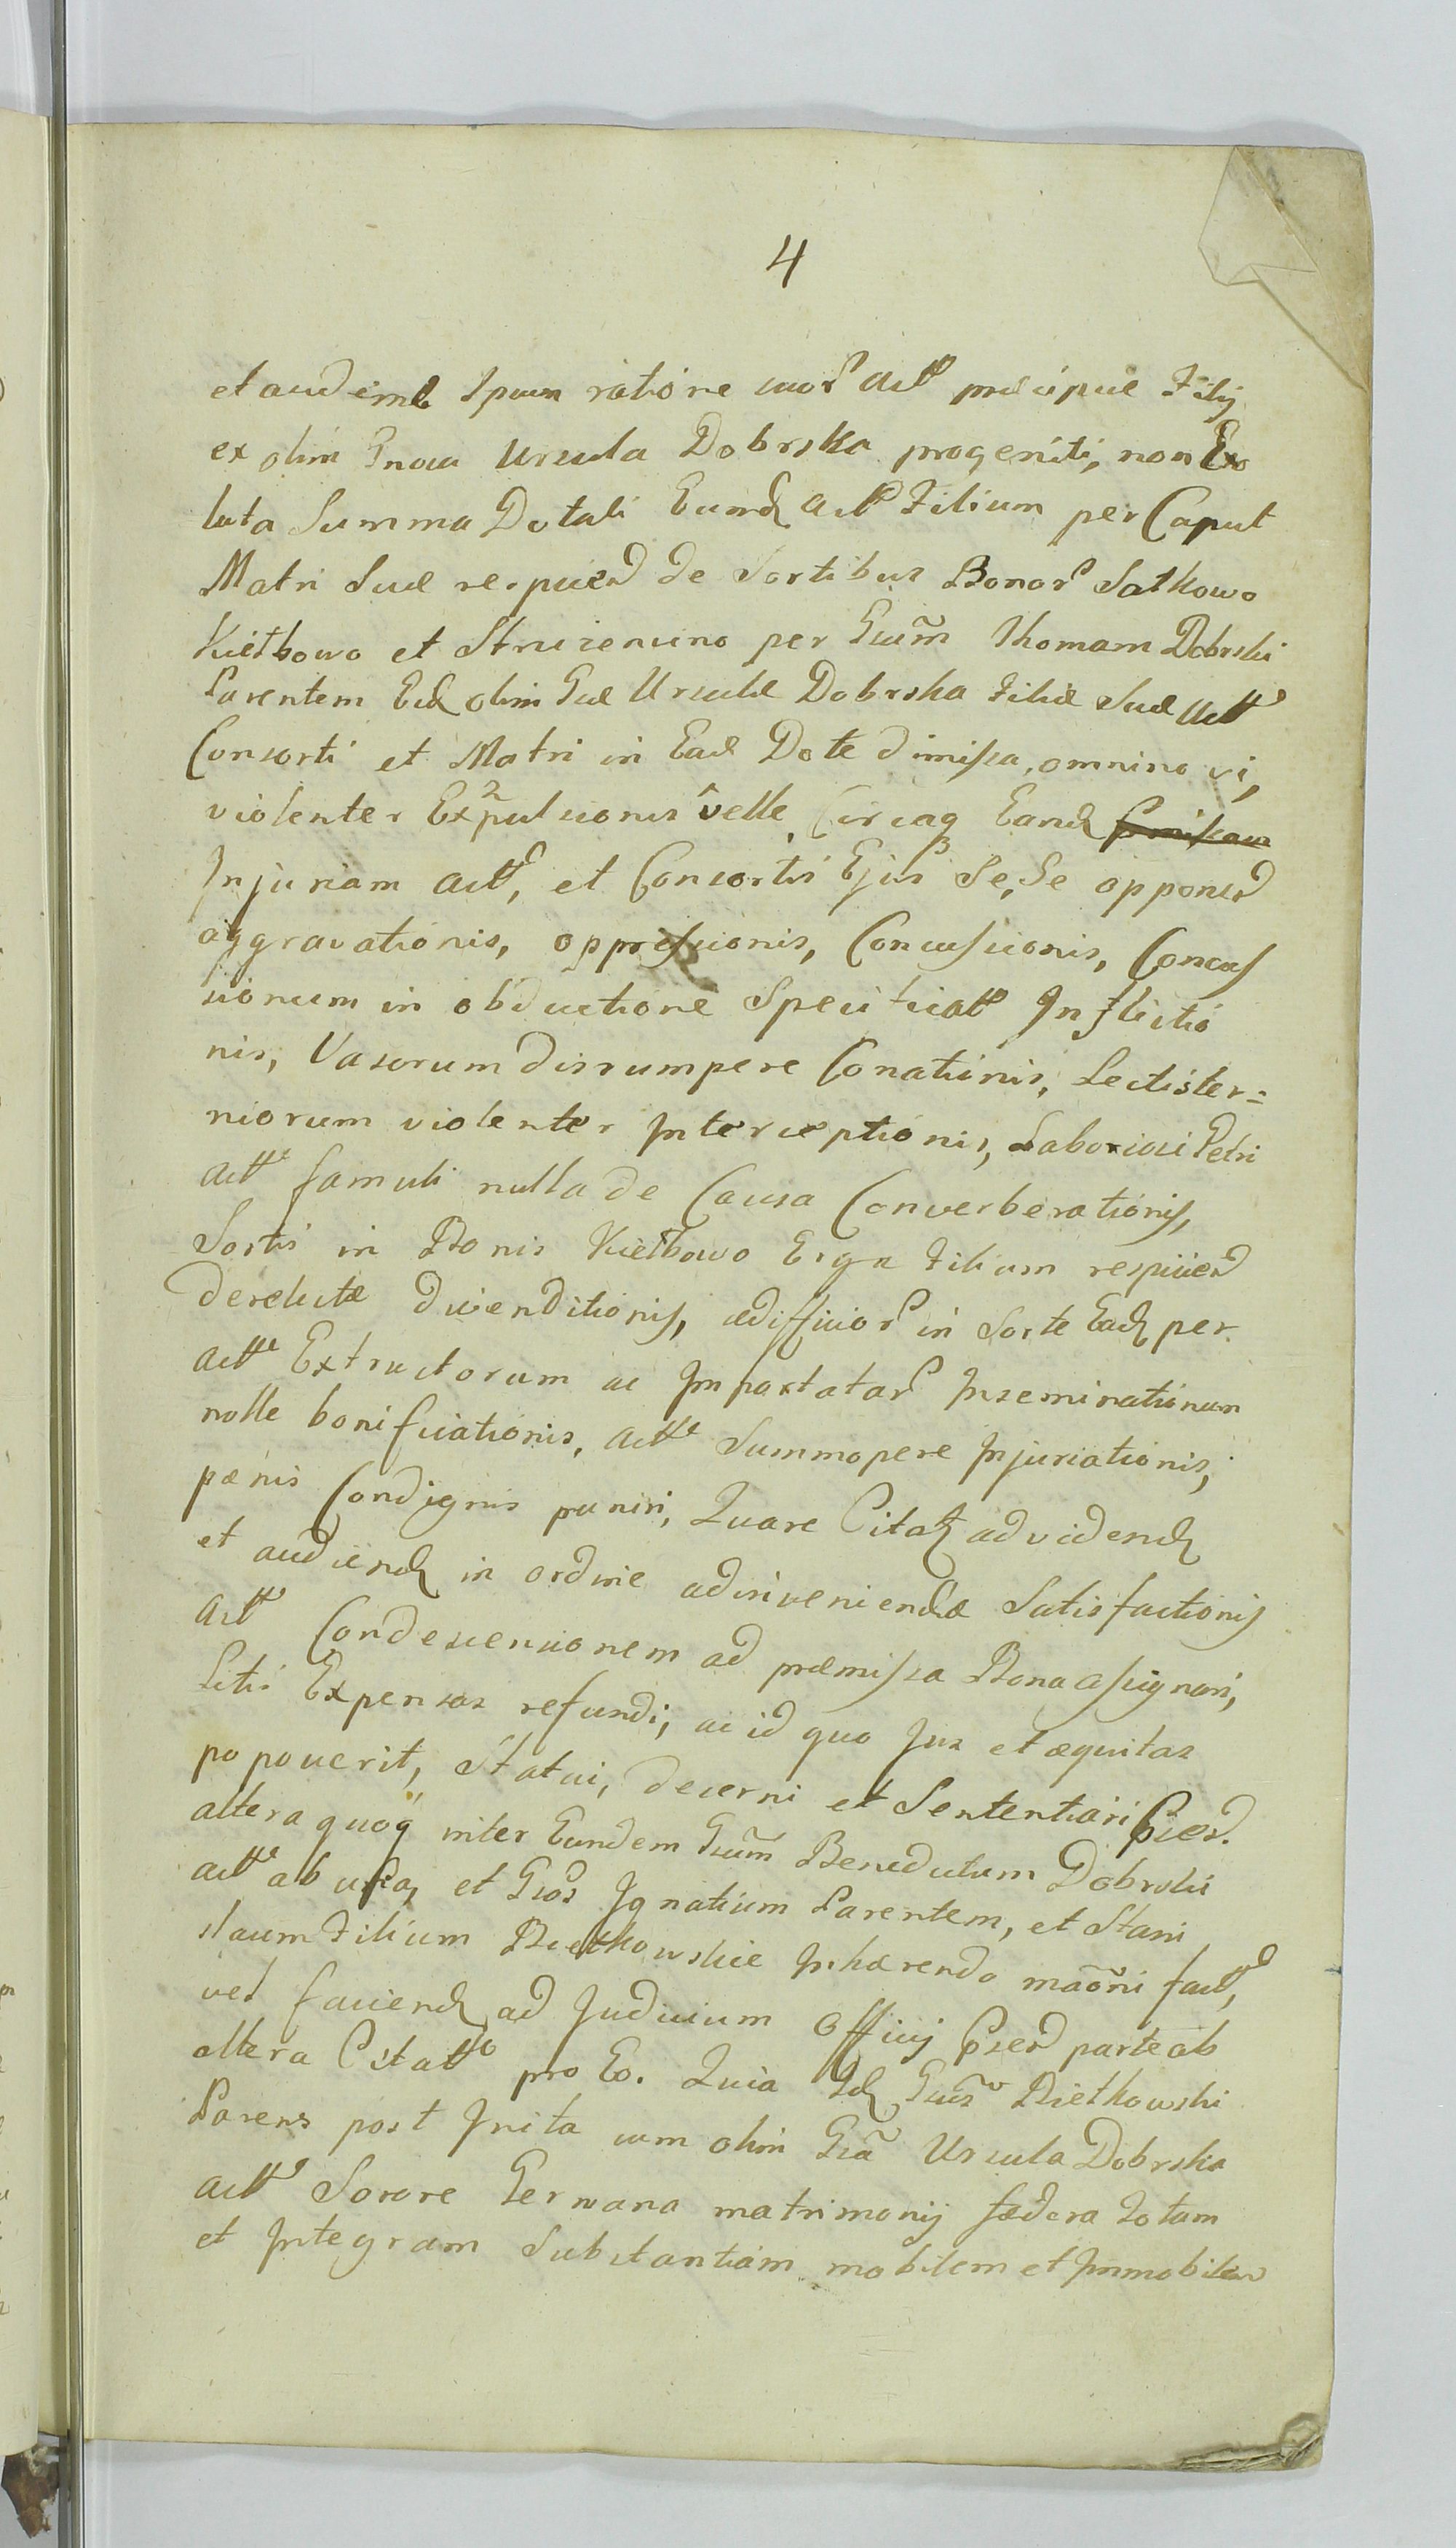 4
et audend Ipsum ratione suor Actt præcipue Filij
ex olim Gnosa Ursula Dobrska progeniti, non Exo
luta Summa Dotali Eund Actt Filium per Caput
Matri Suæ respicien de Sortibus Bonor Satkowo
Kiełbowo et Struzewino per Gsum Thomam Dobrski
Parentem Eid olim Gsæ Ursulæ Dobrska Filiæ Suæ Actt
Consorti et Matri in Ead Dote dimissa, omnino vi,
violenter Expulsionis velle, Circaq Eand
Injuriam Actt, et Consortis Ejus Se, Se opponen
aggravationis, oppressionis, Concussionis, Concus
sionum in obductione Specificatt Inflictio
nis, Vasorum disrumpere Conationis, Lectister=
niorum violenter Interceptionis, Laboriosi Petri
Actt famuli nulla de Causa Converberationis,
Sortis in Bonis Kiełbowo Erga Filium respicien
derelictæ divenditionis, ædifficior in Sorte Ead per
Actt Extructorum ac Importatar Inseminationum
nolle bonificationis, Actt Summopere Injuriationis,
pænis Condignis puniri, Quare Citat ad vidend
et audiend in ordine adinveniendæ Satisfactionis
Actt Condescensionem ad præmissa Bona assignari,
Litis Expensas refundi, ac id quo Jus et æquitas
popoverit, Statui, decerni et Sententiari
altera quoq inter Eundem Gsum Benedictum Dobrski
Actt ab una, et Gsos Ignatium Parentem, et Stani
slaum Filium Bietkowskie Inhærendo maoni fact,
vel faciend ad Judicium Officij parte ab
altera Citatt pro Eo. Quia Id Gsus Bietkowski
Parens post Inita cum olim Gsa Ursula Dobrska
Actt Sorore Germana matrimonij fædera totam
et Integram Substantiam mobilem et Immobilem